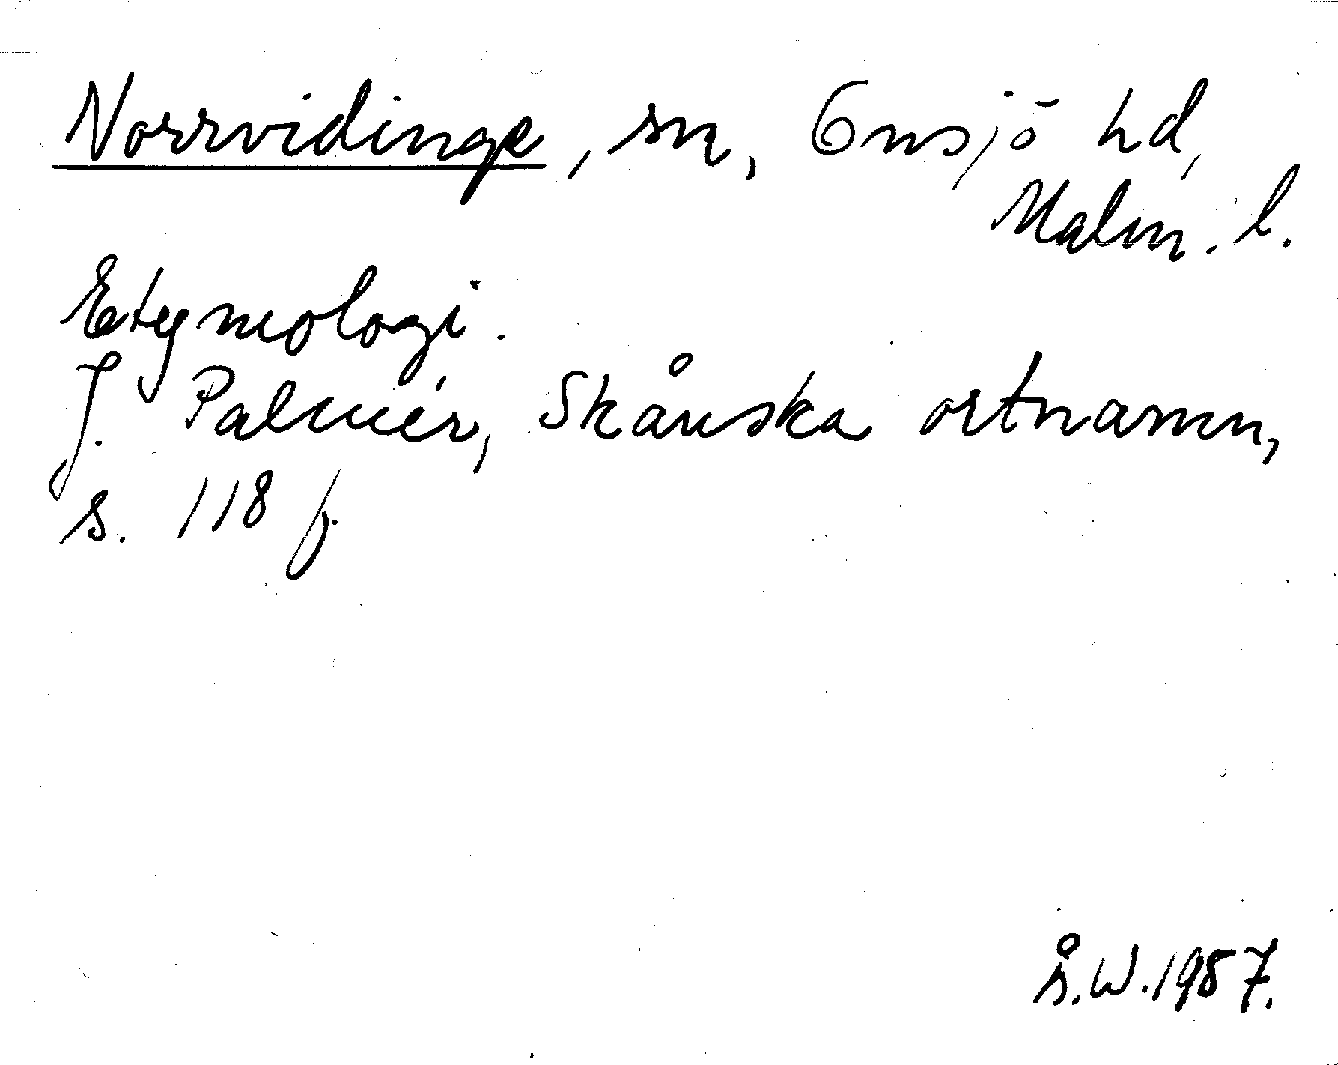 Norrvidinge, sn, Onsjö hd,
Malm. l.
Etymologi.
J. Palmér, Skånska ortnamn,
s. 118 f.
Å.W.1987.